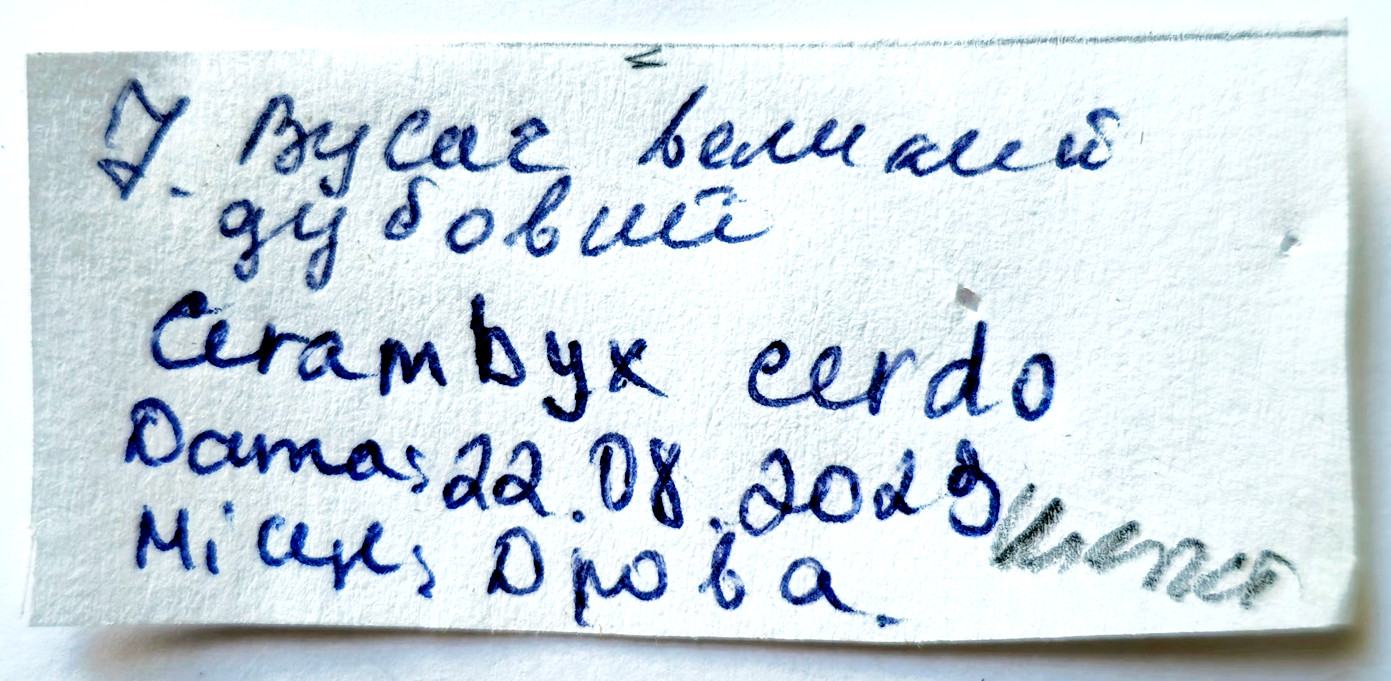 7. Вусач великий
дубовий
Cerambyx cerdo
Дата: 22.08.2023
Місце: Дрова.